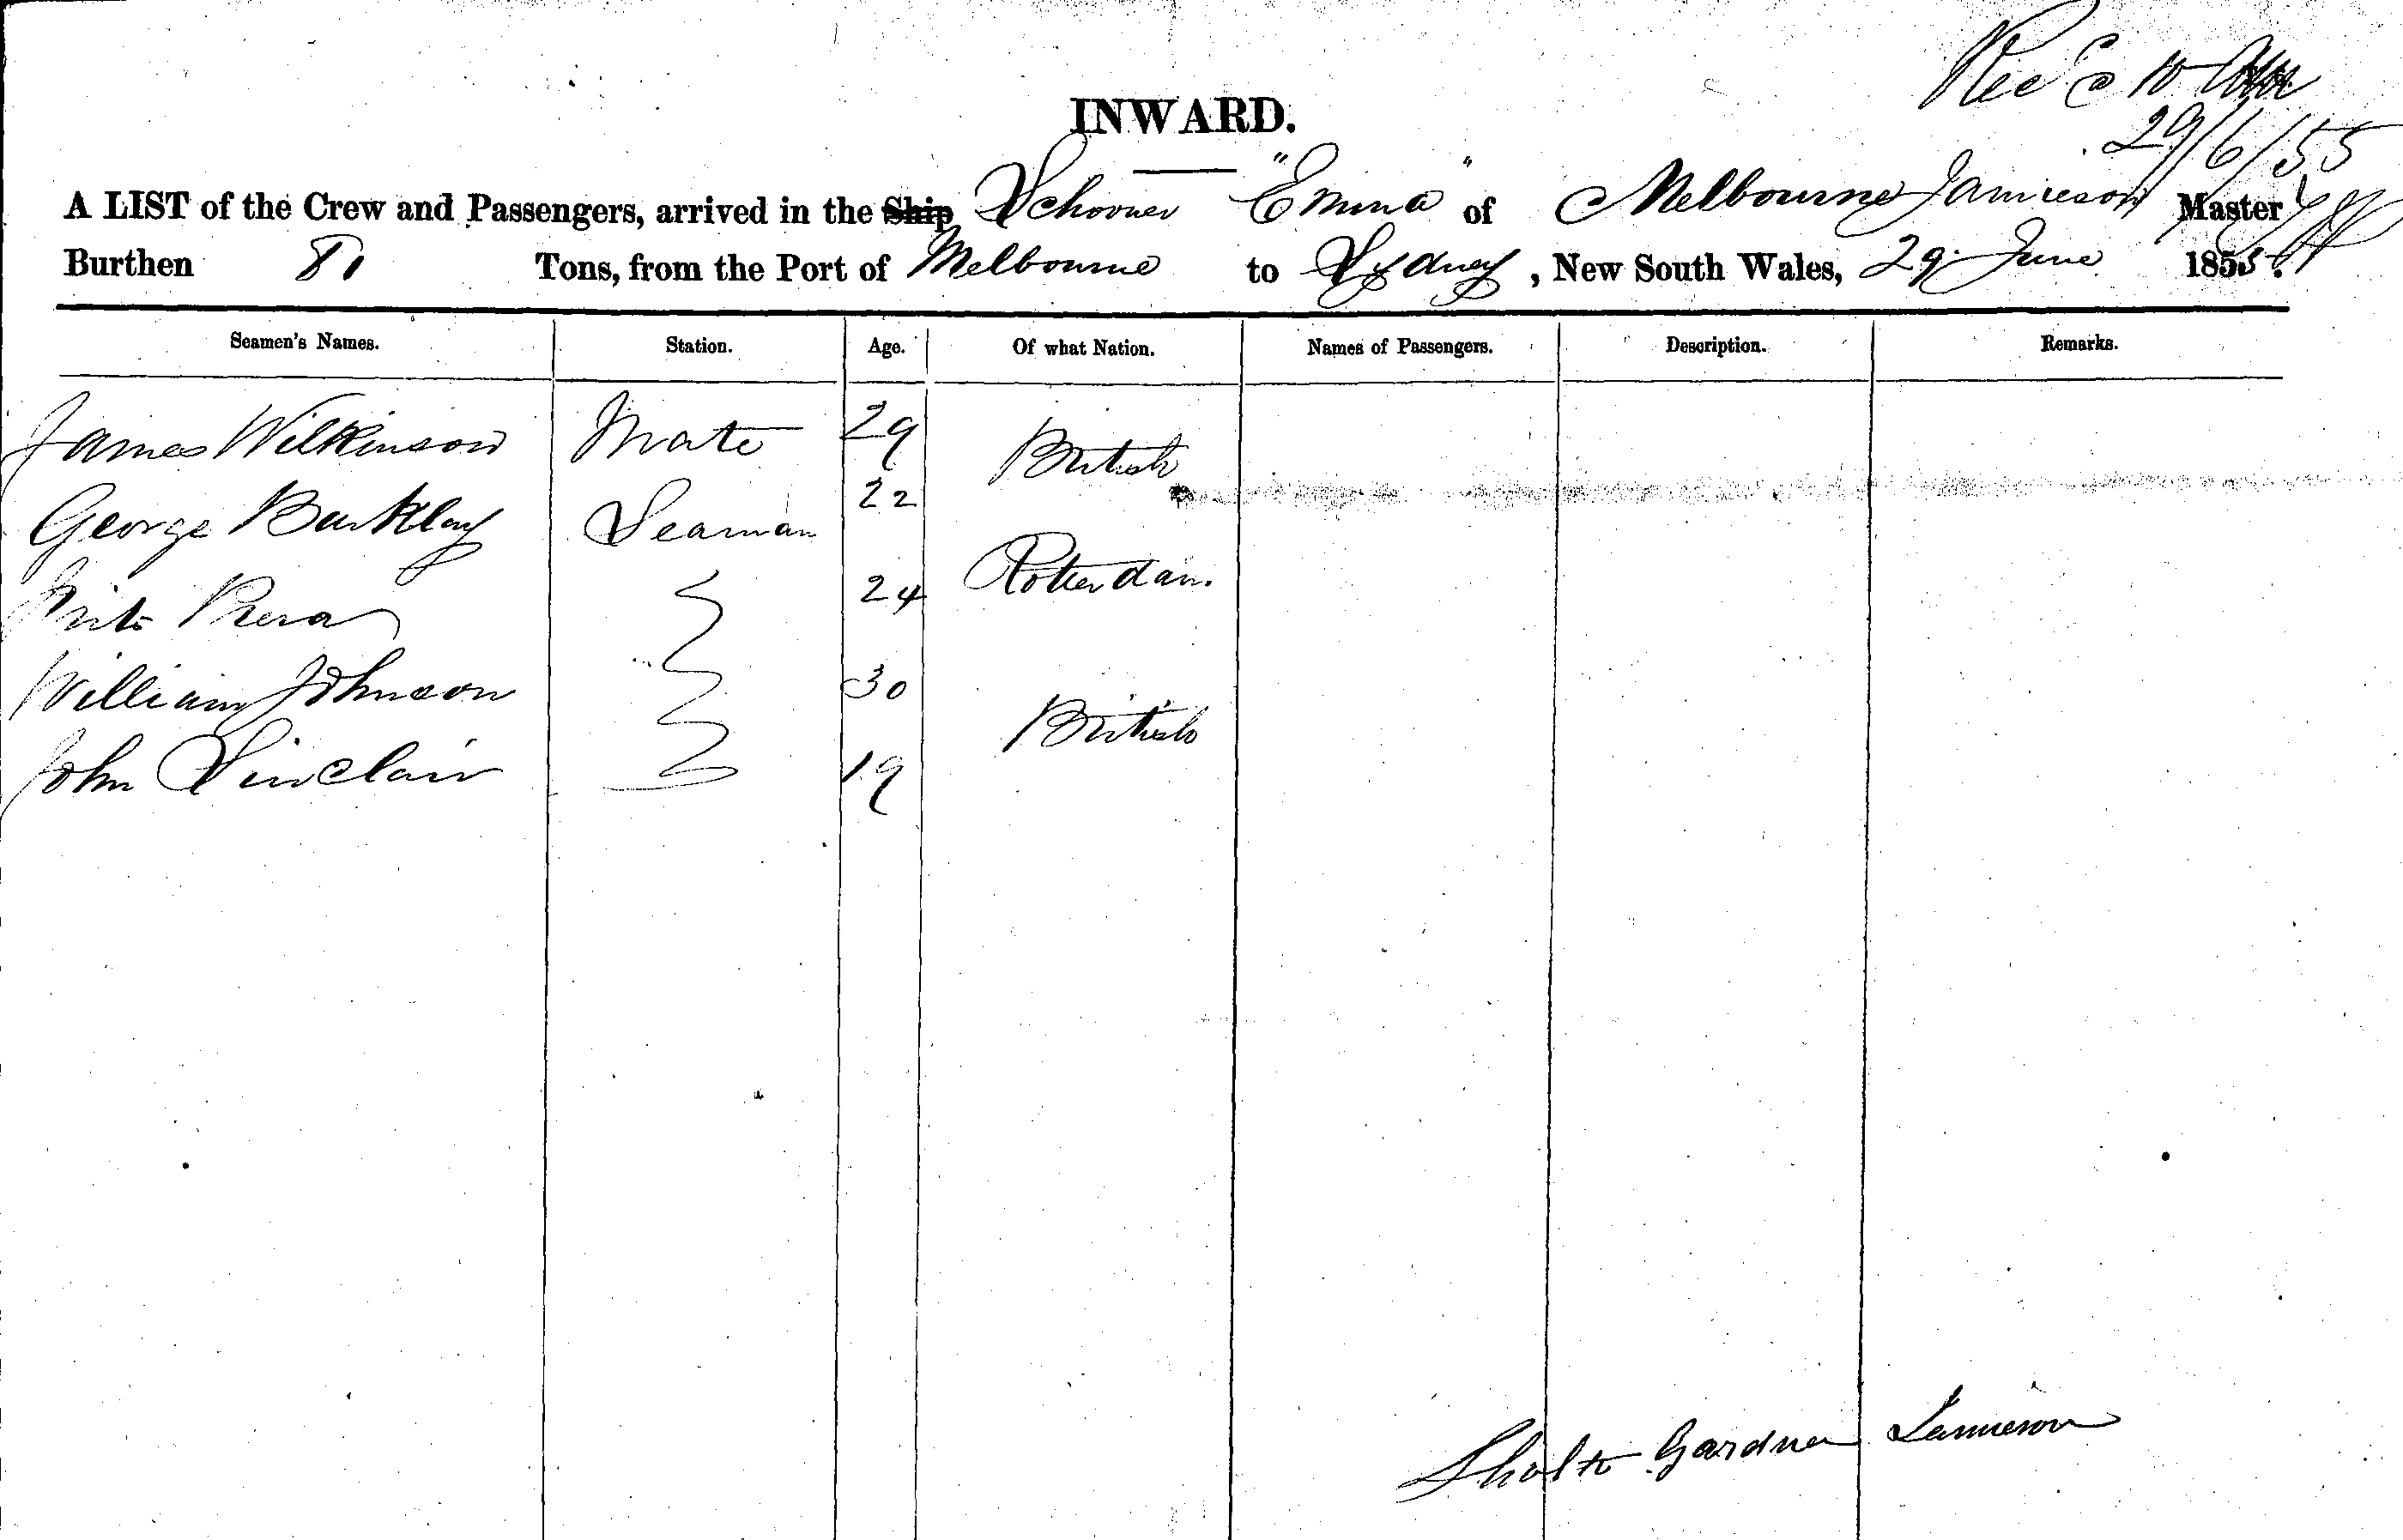 Rec'd 10 AM
29/6/55
INWARD.
A LIST of the Crew and Passengers, arrived in the Ship Schooner "Emma" of Melbourne Jamieson Master
Burthen 81 Tons, from the Port of Melbourne to Sydney, New South Wales, 29 June 1855.
Seamen's Names. Station. Age. Of what Nation. Names of Passengers. Description. Remarks.
James Wilkinson Mate 29 British
George Barklay Seaman 22
24 Rotterdam.
William Johnson 30 British
John Sinclair 19
Sholto Gardner Jamieson